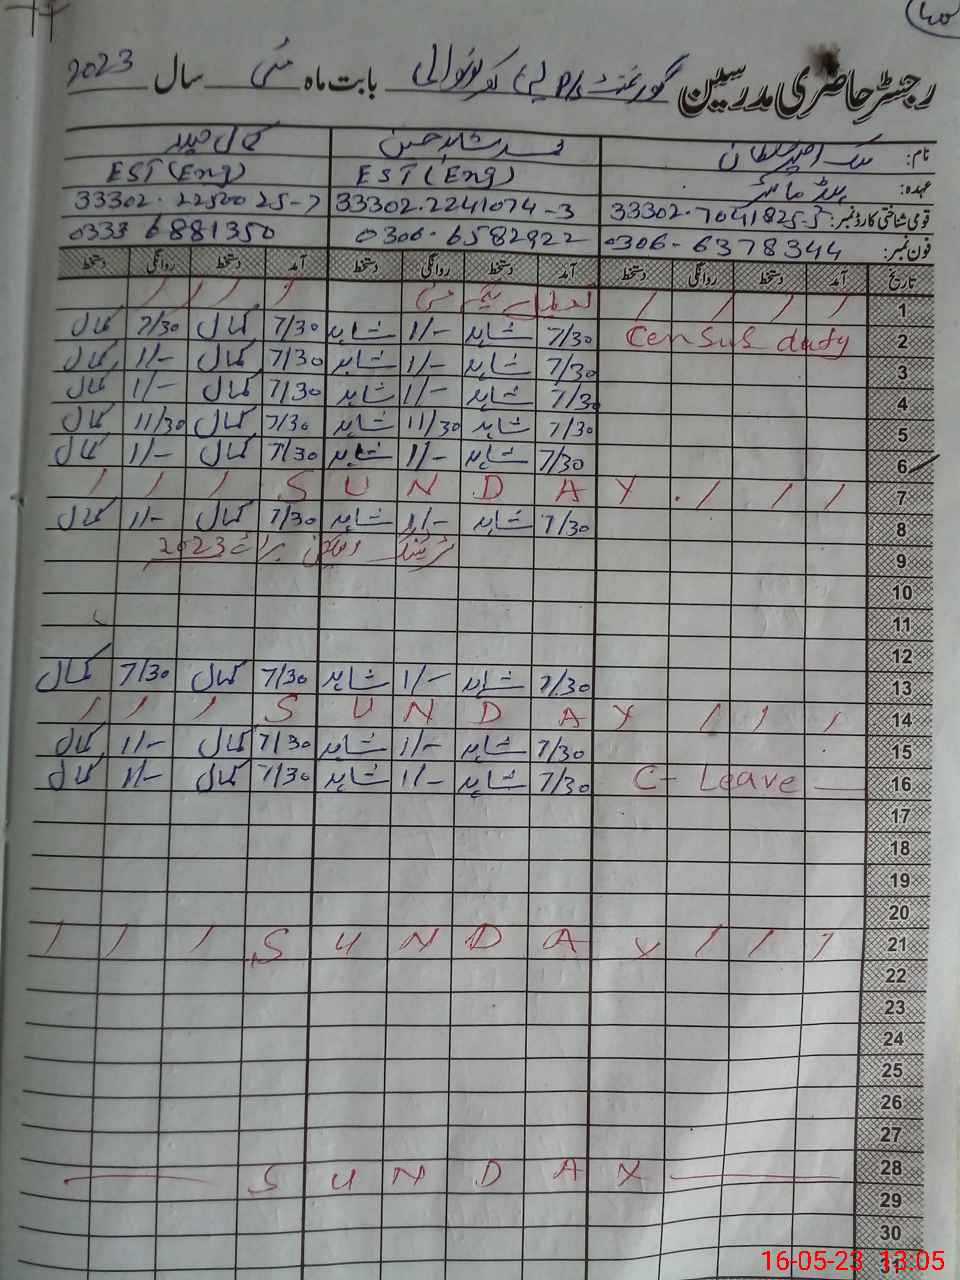 رجسٹر حاضری مدرسین گورنمنٹ P/S بابت ماہ مئی سال 2023
نام: ملک سلطان شاہد حسن کمال حیدر
عہدہ: ہیڈ ماسٹر EST (Eng) EST (Eng)
قومی شناختی کارڈ نمبر: 33302-7041825-5 33302-2241074-3 33302-2250025-7
فون نمبر: 0306-6378344 0306-6582922 0333 6881350
تاریخ آمد دستخط روانگی دستخط آمد دستخط روانگی دستخط آمد دستخط روانگی دستخط
1 تعطیل یکم مئی
2 Census duty 7/30 شاہد 1/- شاہد 7/30 کمال 7/30 کمال
3 7/30 شاہد 1/- شاہد 7/30 کمال 1/- کمال
4 7/30 شاہد 1/- شاہد 7/30 کمال 1/- کمال
5 7/30 شاہد 11/30 شاہد 7/30 کمال 11/30 کمال
6 7/30 شاہد 1/- شاہد 7/30 کمال 1/- کمال
7 SUNDAY
8 7/30 شاہد 1/- شاہد 7/30 کمال 1/- کمال
9 ٹریننگ الیکشن برائے 2023
10
11
12
13 7/30 شاہد 1/- شاہد 7/30 کمال 7/30 کمال
14 SUNDAY
15 7/30 شاہد 1/- شاہد 7/30 کمال 1/- کمال
16 C-Leave 7/30 شاہد 1/- شاہد 7/30 کمال 1/- کمال
17
18
19
20
21 SUNDAY
22
23
24
25
26
27
28 SUNDAY
29
30
31
16-05-23 13:05